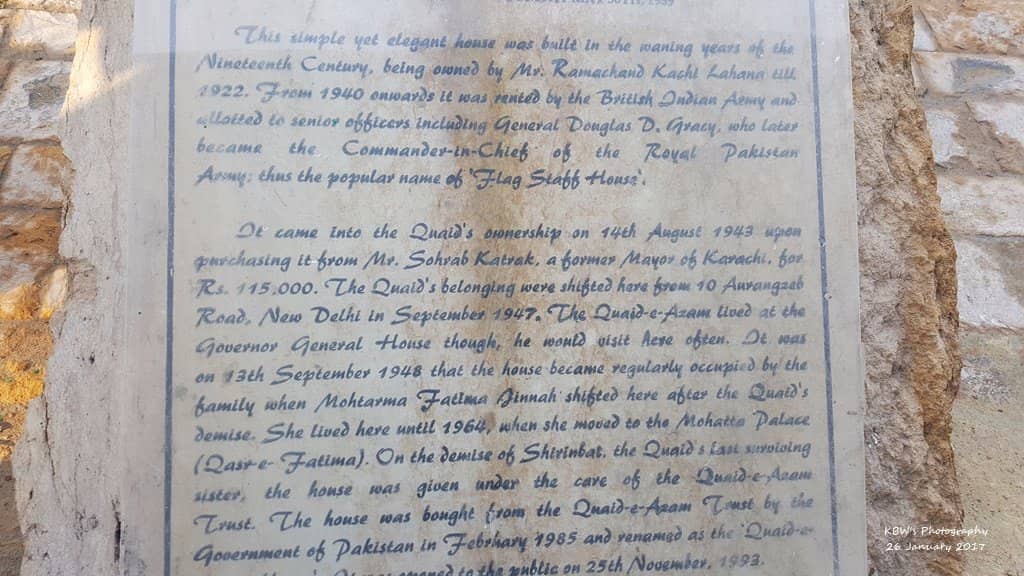 This simple yet elegant house was built in the waning years of the
Nineteenth Century, being owned by Mr. Ramachand Kachi Lahana till
1922. From 1940 onwards it was rented by the British Indian Army and
allotted to senior officers including General Douglas D. Gracy, who later
became the Commander-in-Chief of the Royal Pakistan
Army; thus the popular name of 'Flag Staff House'.
It came into the Quaid's ownership on 14th August 1943 upon
purchasing it from Mr. Sohrab Katrak, a former Mayor of Karachi, for
Rs. 115,000. The Quaid's belonging were shifted here from 10 Aurangzeb
Road, New Delhi in September 1947. The Quaid-e-Azam lived at the
Governor General House though, he would visit here often. It was
on 13th September 1948 that the house became regularly occupied by the
family when Mohtarma Fatima Jinnah shifted here after the Quaid's
demise. She lived here until 1964, when she moved to the Mohatta Palace
(Qasr-e- Fatima). On the demise of Shirinbat, the Quaid's last surviving
sister, the house was given under the care of the Quaid-e-Azam
Trust. The house was bought from the Quaid-e-Azam Trust by the
Government of Pakistan in February 1985 and renamed as the 'Quaid-e-
opened to the public on 25th November, 1993.
KBW's Photography
26 January 2017